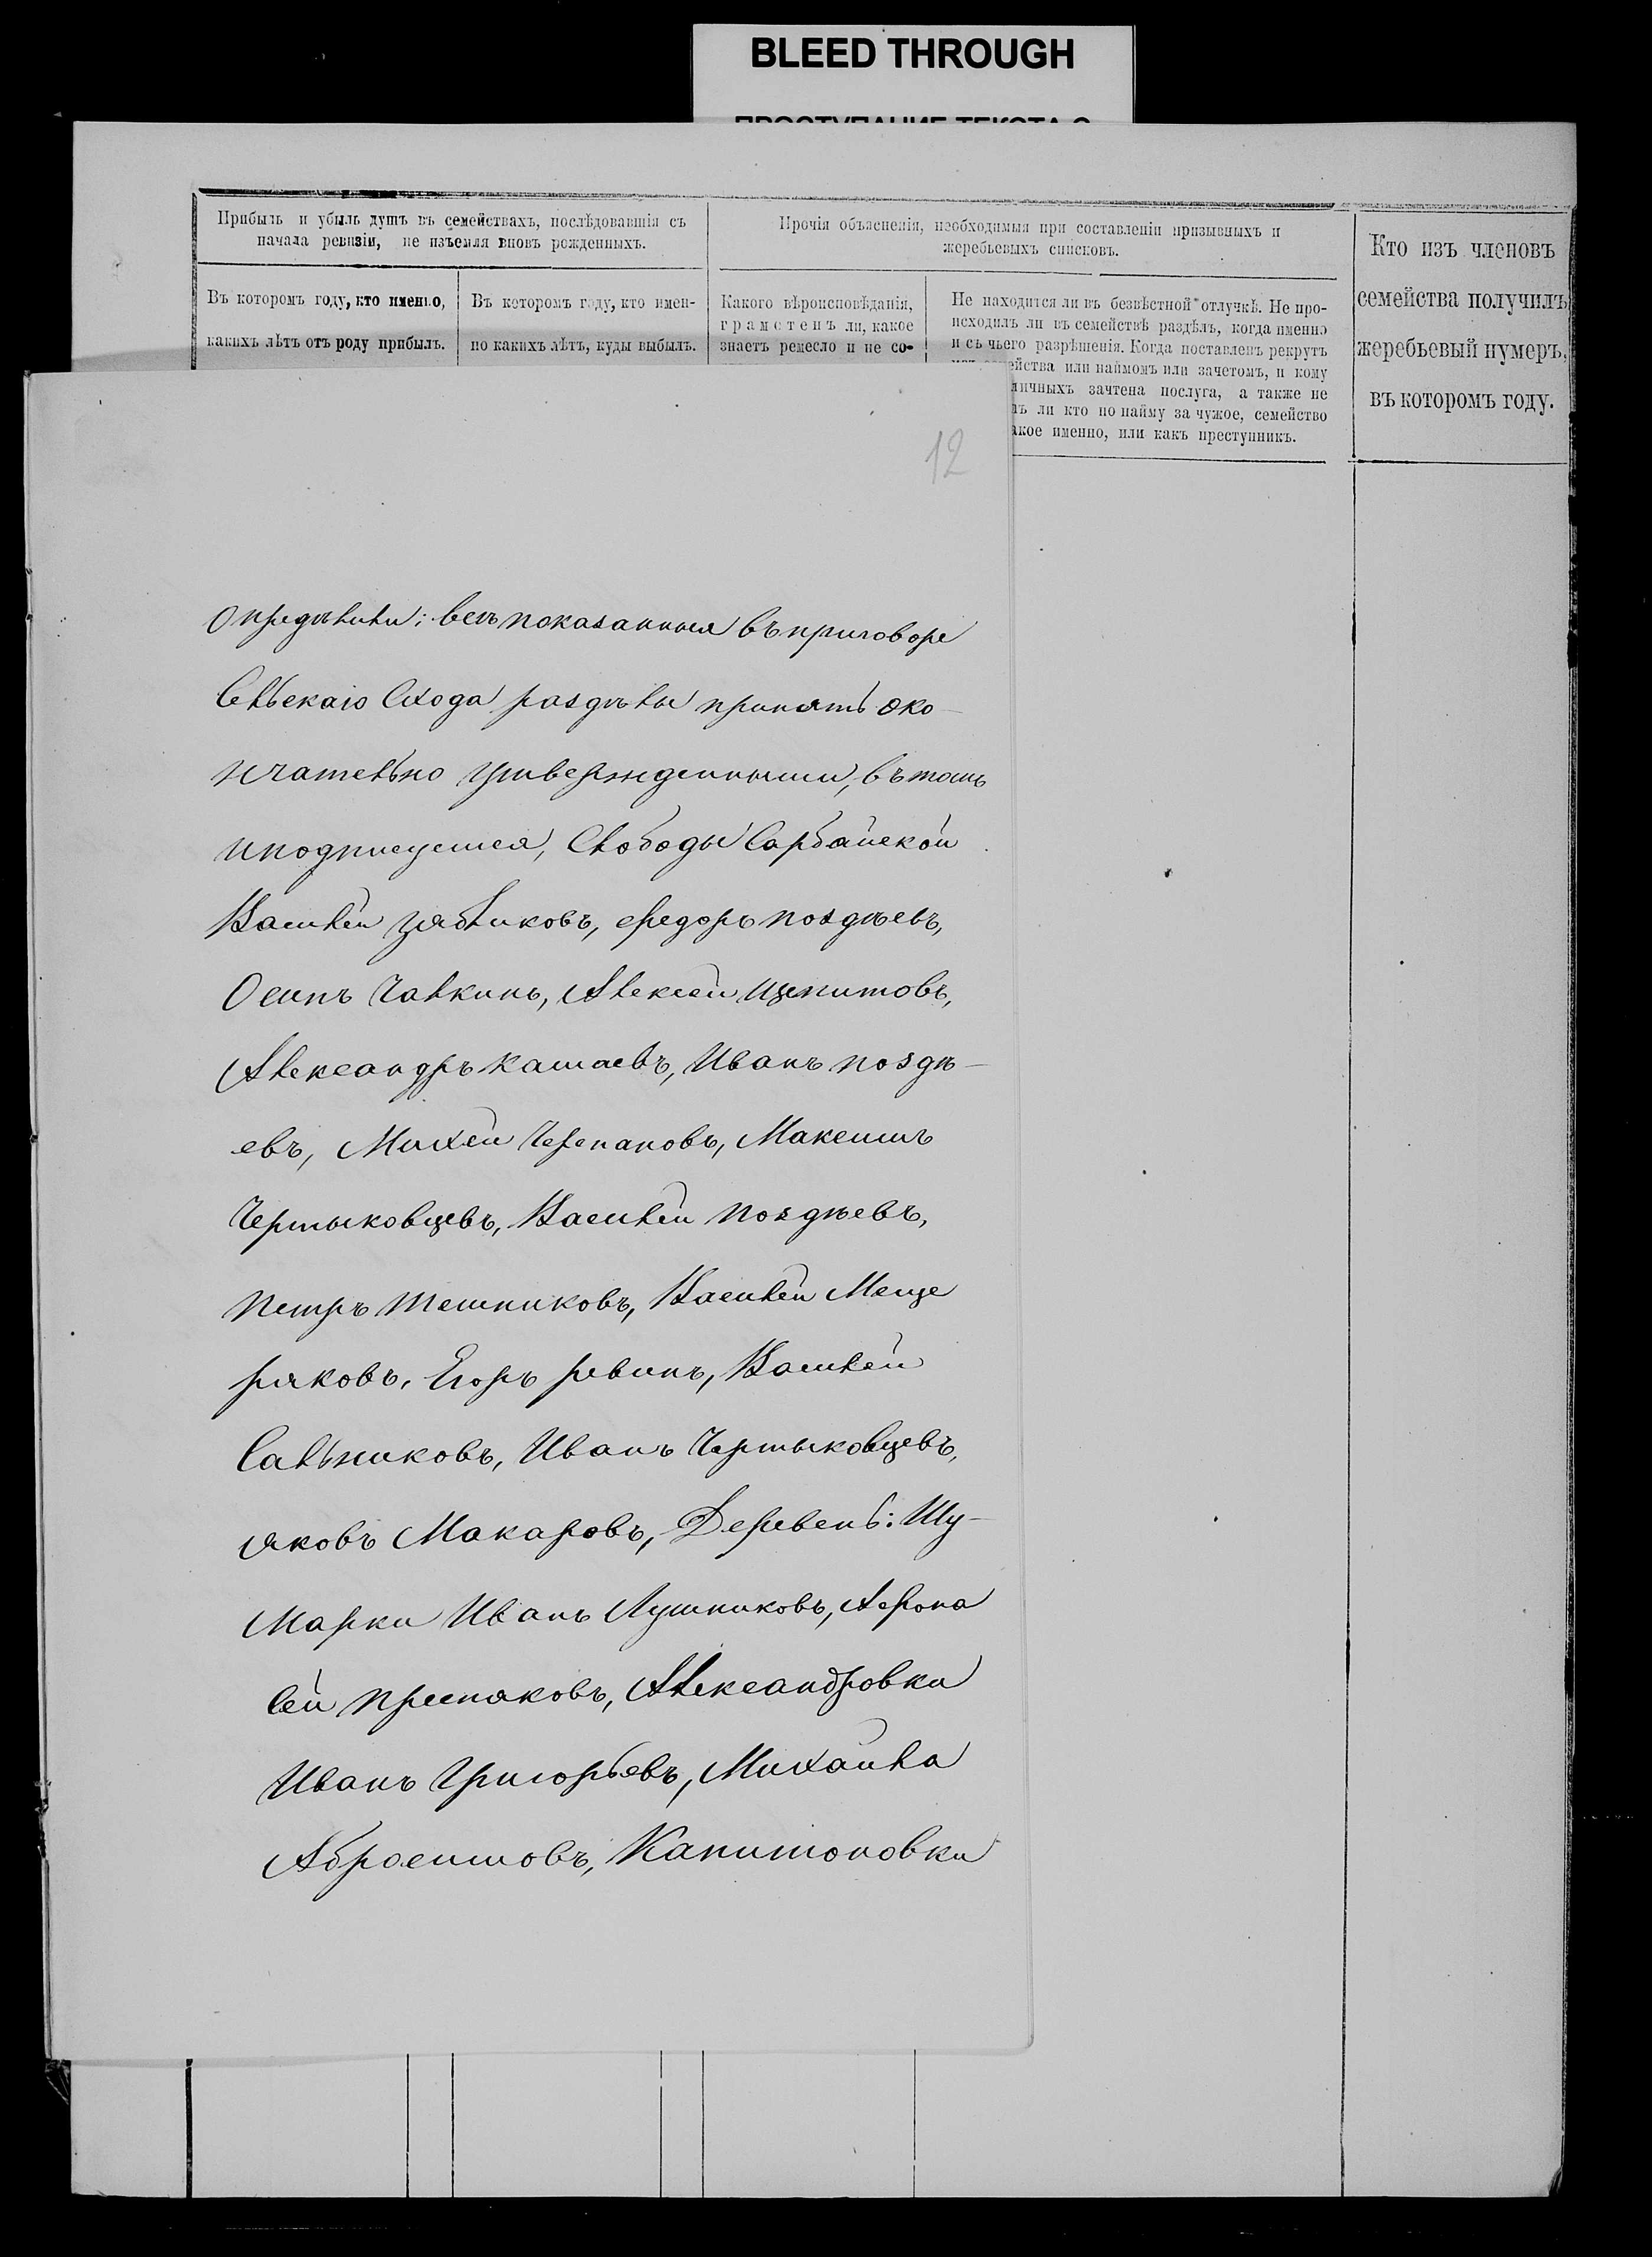 BLEED THROUGH
Прибыль и убыль душъ въ семействахъ, послѣдовавшія съ
начала ревизіи, не изъемля вновь рожденныхъ.
Прочія объясненія, необходимыя при составленіи призывныхъ и
жеребьевыхъ списковъ.
Кто изъ членовъ
семейства получилъ
жеребьевый нумеръ,
въ которомъ году.
Въ которомъ году, кто именно,
какихъ лѣтъ отъ роду прибылъ.
Въ котормъ году, кто имен-
но какихъ лѣтъ, куды выбылъ.
Какого вѣроисповѣданія,
грамотенъ ли, какое
знаетъ ремесло и не со-
Не находится ли въ безвѣстной отлучкѣ. Не про-
исходилъ ли въ семействѣ раздѣлъ, когда именно
и съ чьего разрѣшенія. Когда поставленъ рекрутъ
ейства или наймомъ или зачетомъ, и кому
личныхъ зачтена послуга, а также не
ли кто по найму за чужое, семейство
акое именно, или какъ преступникъ.
12
Опредѣлили: всѣ показанныя въ приговоре
Сельскаго Схода раздѣлы принять око-
нчательно утвержденными, въ томъ
и подписуемся, Слободы Сарбайской
Василей Зябликовъ, Федоръ Позднѣевъ,
Осипъ Чалкинъ, Алексей Щепитовъ,
Александръ Кашаевъ, Иванъ Поздн-
евъ, Михей Черепановъ, Максимъ
Чертыковцевъ, Василей Позднѣевъ,
Петръ Тешниковъ, Василей Меще
ряковъ, Егоръ Ревинъ, Василей
Сальниковъ, Иванъ Чертыковцевъ,
Яковъ Макаровъ, Деревень: Шу-
марки Иванъ Лушниковъ, Афона
сей Пресняковъ, Александровки
Иванъ Григорьевъ, Михаила
Абросимовъ, Капитоновки